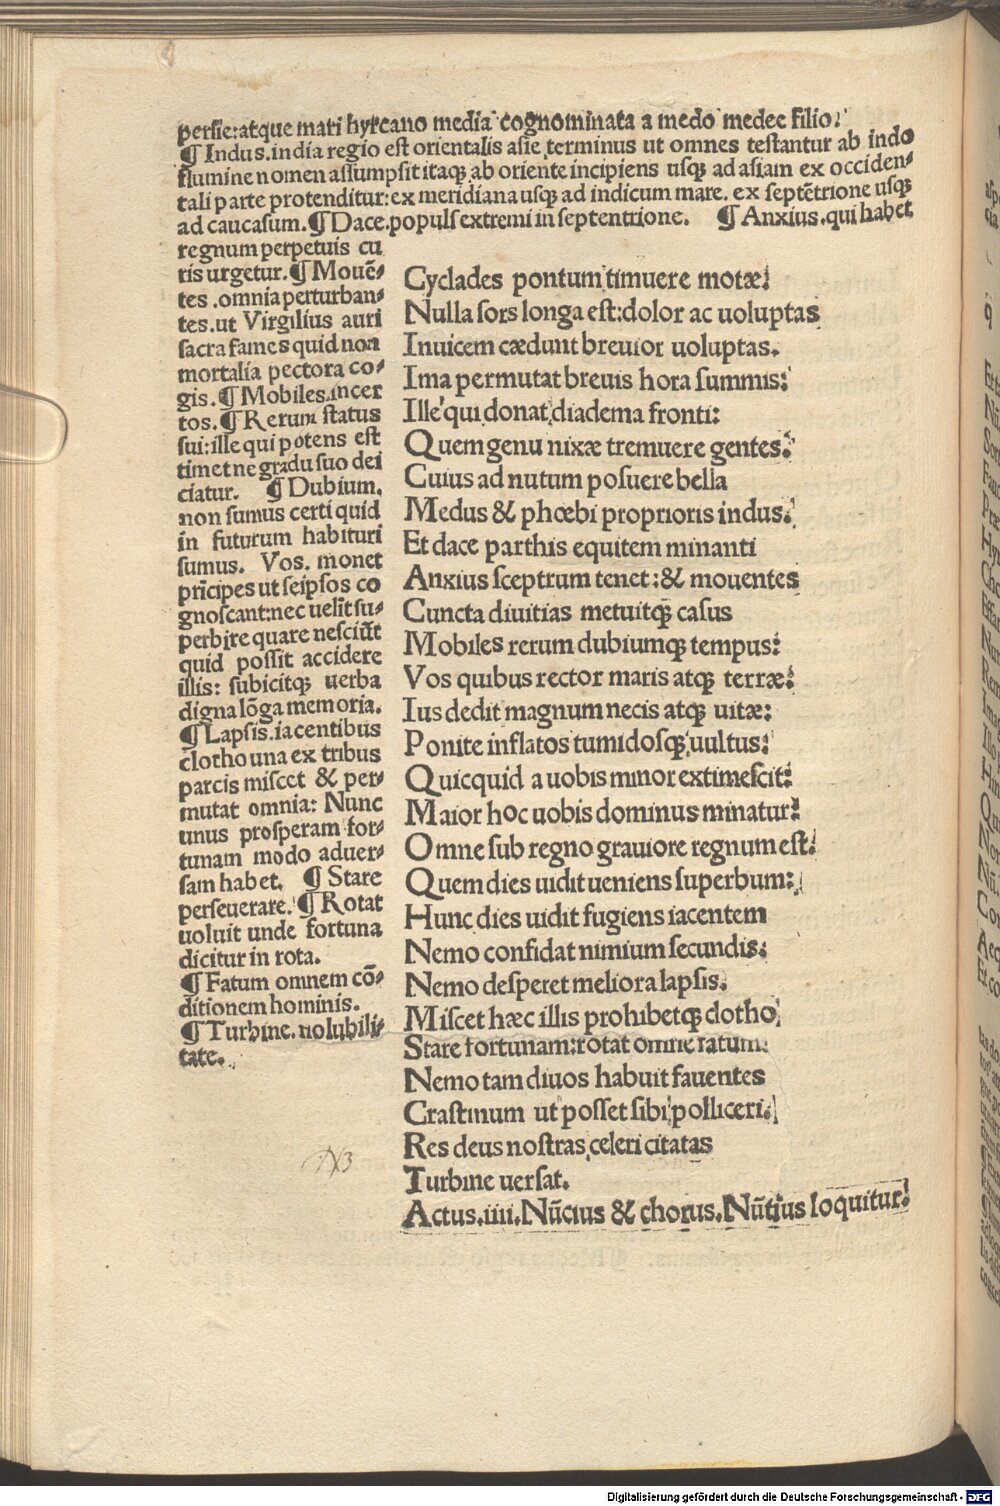 persie:atque mari hyrcano media cognominata a medo medee filio.
¶ Indus.india regio est orientalis asie terminus ut omnes testantur ab indo
flumine nomen assumpsit itaqꝫ ab oriente incipiens usqꝫ ad asiam ex occiden-
tali parte protenditur:ex meridiana usqꝫ ad indicum mare. ex septẽtrione usqꝫ
ad caucasum.¶ Dace.populs extremi in septentrione. ¶ Anxius.qui habet
regnum perpetuis cu
ris urgetur.¶ Mouẽ-
tes .omnia perturban-
tes.ut Virgilius auri
sacra fames quid non
mortalia pectora co-
gis.¶ Mobiles.incer
tos.¶ Rerum status
sui:ille qui potens est
timet ne gradu suo dei
ciatur. ¶ Dubium.
non sumus certi quid
in futurum habituri
sumus. Vos. monet
prĩcipes ut seipsos co
gnoscant:nec uelĩt su-
perbire quare nesciũt
quid possit accidere
illis: subicitqꝫ uerba
digna lõga memoria.
¶ Lapsis.iacentibus
clotho una ex tribus
parcis miscet & per-
mutat omnia: Nunc
unus prosperam for-
tunam modo aduer-
sam habet. ¶ Stare
perseuerare.¶ Rotat
uoluit unde fortuna
dicitur in rota.
¶ Fatum omnem cõ-
ditionem hominis.
¶ Turbine. uolubili-
tate.
Cyclades pontum timuere motæ:
Nulla sors longa est:dolor ac uoluptas
Inuicem cædunt breuior uoluptas.
Ima permutat breuis hora summis:
Ille qui donat diadema fronti:
Quem genu nixæ tremuere gentes:
Cuius ad nutum posuere bella
Medus & phœbi proprioris indus:
Et dace parthis equitem minanti
Anxius sceptrum tenet:& mouentes
Cuncta diuitias metuitqꝫ casus
Mobiles rerum dubiumqꝫ tempus:
Vos quibus rector maris atqꝫ terræ:
Ius dedit magnum necis atqꝫ uitæ:
Ponite inflatos tumidosqꝫ uultus:
Quicquid a uobis minor extimescit:
Maior hoc uobis dominus minatur:
Omne sub regno grauiore regnum est:
Quem dies uidit ueniens superbum:
Hunc dies uidit fugiens iacentem
Nemo confidat nimium secundis:
Nemo desperet meliora lapsis.
Miscet hæc illis prohibetqꝫ clotho
Stare fortunam:rotat omne fatum:
Nemo tam diuos habuit fauentes
Crastinum ut posset sibi polliceri.
Res deus nostras celeri citatas
Turbine uersat.
Actus.iiii.Nũcius & chorus.Nũtius loquitur:
Digitalisierung gefördert durch die Deutsche Forschungsgemeinschaft - DFG